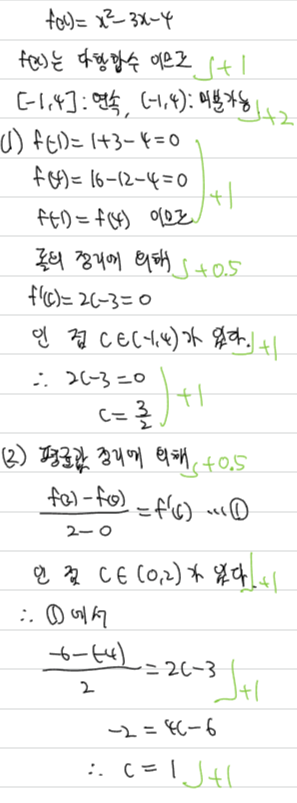 f(x) = x² - 3x - 4
f(x)는 다항함수 이므로 +1
[-1, 4] : 연속, (-1, 4) : 미분가능 +2
(1) f(-1) = 1 + 3 - 4 = 0
f(4) = 16 - 12 - 4 = 0
f(-1) = f(4) 이므로 +1
롤의 정리에 의해 +0.5
f'(c) = 2c - 3 = 0
인 점 c ∈ (-1, 4)가 있다. +1
∴ 2c - 3 = 0
c = 3/2 +1
(2) 평균값 정리에 의해 +0.5
(f(2) - f(0))/(2 - 0) = f'(c) ... ①
인 점 c ∈ (0, 2)가 있다. +1
∴ ①에서
(-6 - (-4))/2 = 2c - 3 +1
-2 = 4c - 6
∴ c = 1 +1